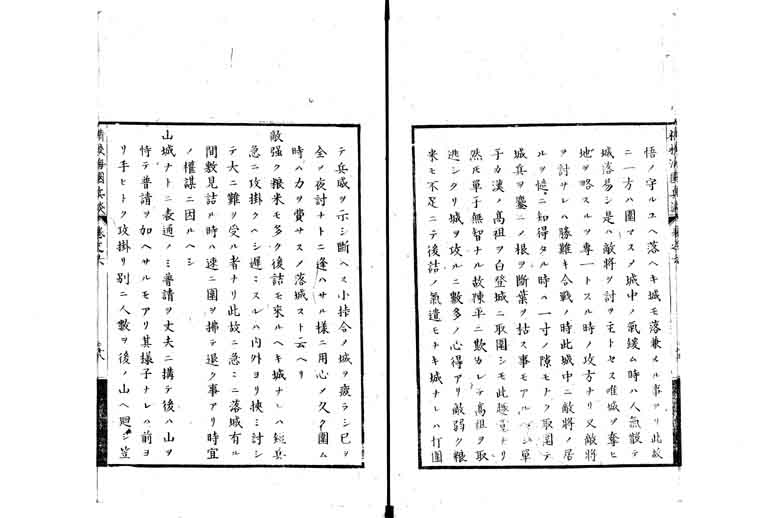 悟ノ守ルユヘ落ヘキ城モ落兼メル事アリ此故
ニ一方ハ圍マスメ城中ノ氣緩ム時ハ人氣散テ
城落易シ是ハ敵將ヲ討ヲ主トセス唯城ヲ奪ヒ
地ヲ略スルヲ專一トスル時ノ攻方ナリ又敵將
ヲ討サレハ勝難キ合戰ノ時此城中ニ敵將ノ居
ルヲ慥ニ知得タル時ハ一寸ノ隙モナク取圍テ
城兵ヲ鏖ニノ根ヲ斷葉ヲ枯ス事モアルヘシ單
于カ漢ノ高祖ヲ白登城ニ取圍シモ此
然モ單于無智ナル故陳平ニ欺カレテ高祖ヲ取
逃シタリ城ヲ攻ルニ數多ノ心得アリ敵弱ク粮
米モ不足ニテ後詰ノ氣遣モナキ城ナレハ打圍
テ兵威ヲ示シ斷ヘス小挊合ノ城ヲ疲ラシ已ヲ
全ノ夜討ナトニ逢ハサル樣ニ用心ノ久ク圍ム
時ハ力ヲ費サスノ落城スト云ヘリ
敵强ク粮米モ多ク後詰モ來ルヘキ城ナレハ短兵
急ニ攻掛クヘシ遲ミスレハ内外ヨリ挾ミ討シ
テ大ニ難ヲ受ル者ナリ此故ニ急ミニ落城有ル
間敷見詰ル時ハ速ニ圍ヲ拂テ退ク事アリ時宜
ノ權謀ニ因ルヘシ
山城ナトニ表通ノミ普請ヲ丈夫ニ搆テ後ハ山ヲ
恃テ普請ヲ加ヘサルモアリ其樣子ナレハ前ヨ
リ手ヒトク攻掛リ別ニ人數ヲ後ノ山ヘ廻シ豈
卷之六